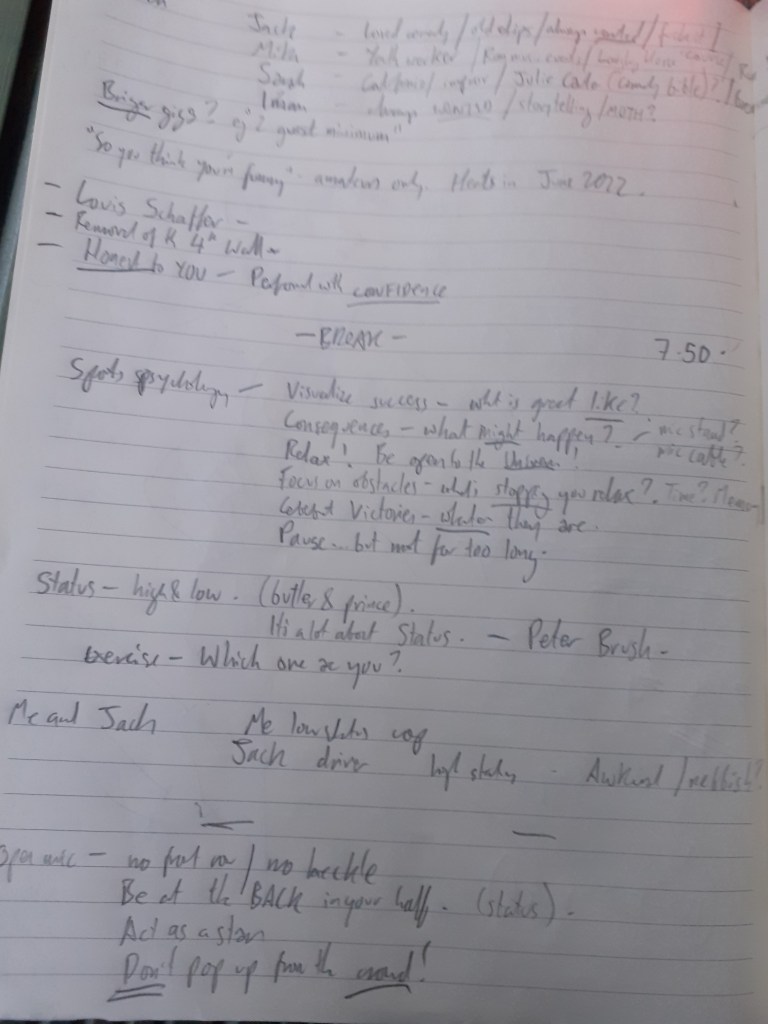 Jack - loved comedy / old clips / always wanted /
Mila - York worker /
Sarah - California / improv / Julie Cato (comedy bible)?
Iman - always wanted to / storytelling / MOTH?
Bringer gigs? eg "2 guest minimum"
"So you think you're funny" - amateurs only. Heats in June 2022.
- Louis Schaffer -
- Removal of K 4th wall -
- Honest to YOU - Perform with CONFIDENCE
- BREAK - 7.50.
Sports psychology - Visualize success - what is great like?
Consequences - what might happen? - mic stand?
mic cable?
Relax! Be open to the Universe!
Focus on obstacles - what is stopping you relax? Time?
Celebrate Victories - whatever they are.
Pause... but not for too long.
Status - high & low. (butler & prince).
It's a lot about Status. - Peter Brush -
Exercise - Which one are you?
Me and Jack Me low status cop
Jack driver high status - Awkward / nebbish?
Open mic - no front row / no heckle
Be at the BACK in your half. (status).
Act as a star
Don't pop up from the crowd!